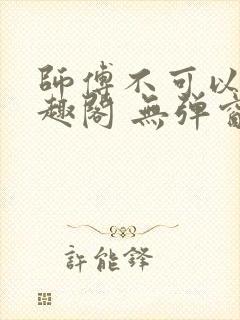 師傅不可以
趣閣 無弹窗
許能鋒